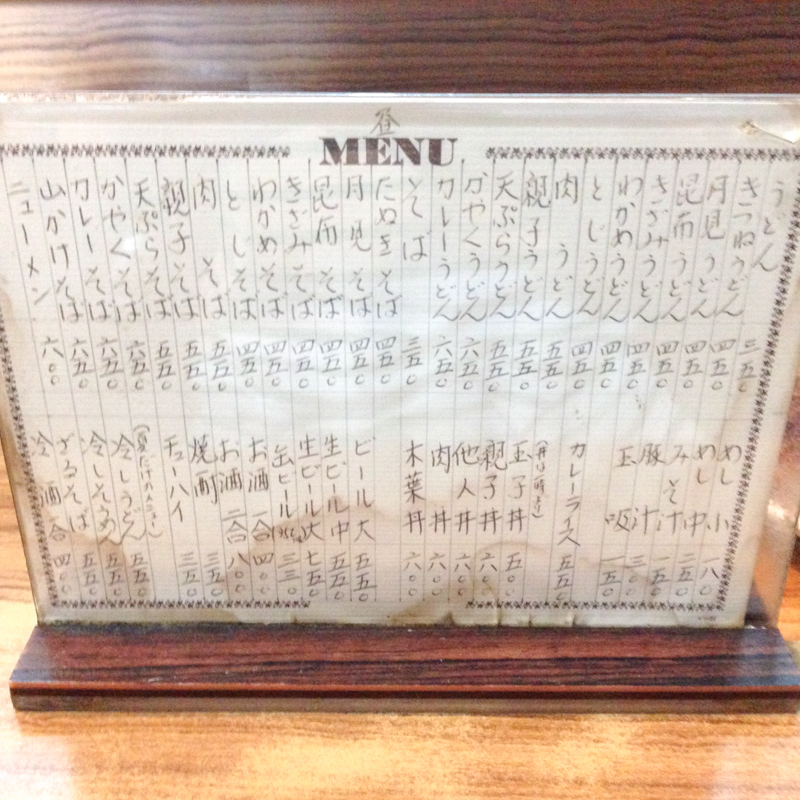 昼
MENU
うどん 三五〇
きつねうどん 四五〇
月見うどん 四五〇
昆布うどん 四五〇
きざみうどん 四五〇
わかめうどん 四五〇
とじうどん 四五〇
肉うどん 五五〇
親子うどん 五五〇
天ぷらうどん 五五〇
かやくうどん 六五〇
カレーうどん 六五〇
そば 三五〇
たぬきそば 四五〇
月見そば 四五〇
昆布そば 四五〇
きざみそば 四五〇
わかめそば 四五〇
とじそば 四五〇
肉そば 五五〇
親子そば 五五〇
天ぷらそば 五五〇
かやくそば 六五〇
カレーそば 六五〇
山かけそば 六五〇
ニューメン 六〇〇
めし小 一八〇
めし中 二五〇
みそ汁 一五〇
豚汁 三〇〇
玉吸 一五〇
カレーライス 五五〇
玉子丼 五〇〇
親子丼 六〇〇
他人丼 六〇〇
肉丼 六〇〇
木葉丼 六〇〇
ビール大 五五〇
生ビール中 五五〇
生ビール大 七五〇
缶ビール 三三〇
お酒一合 四〇〇
お酒二合 八〇〇
焼酎 三五〇
チューハイ 三五〇
(夏だけメニュー)
冷しうどん 五五〇
冷しそうめん 五五〇
ざるそば 五五〇
冷酒一合 四〇〇